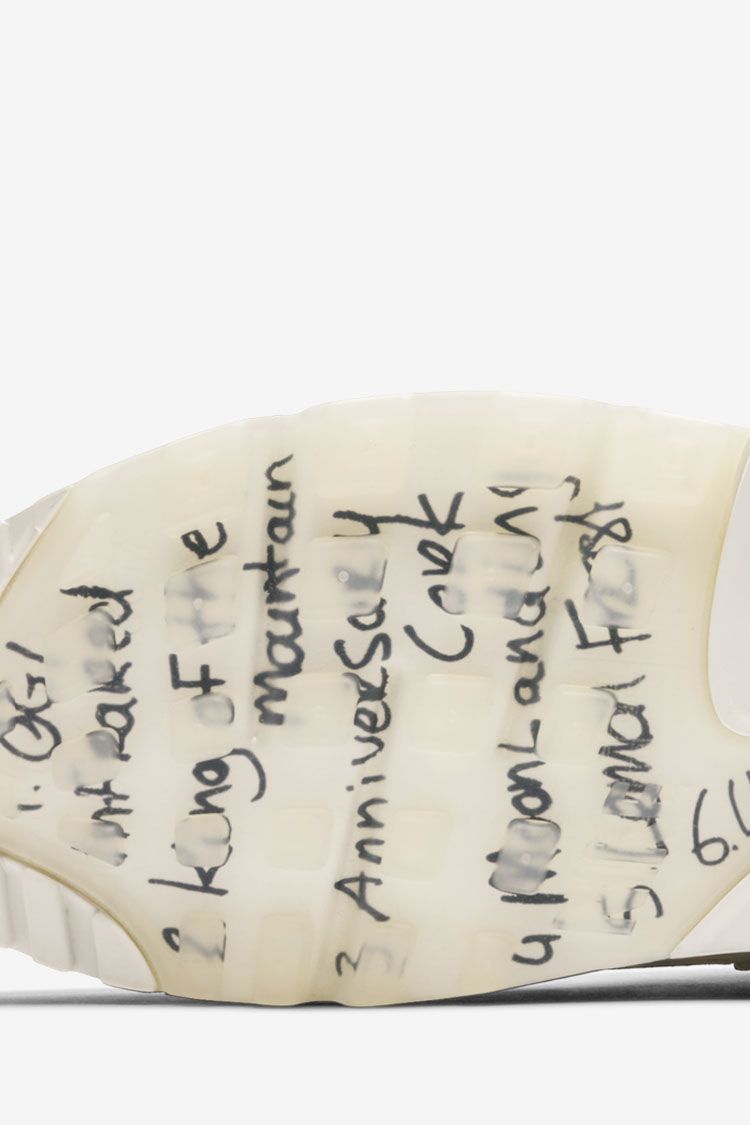 1. OG/
2 King of the
Mountain
3 Anniversary
Cork
4 Moon Landing
5 Lemon Frost
6.